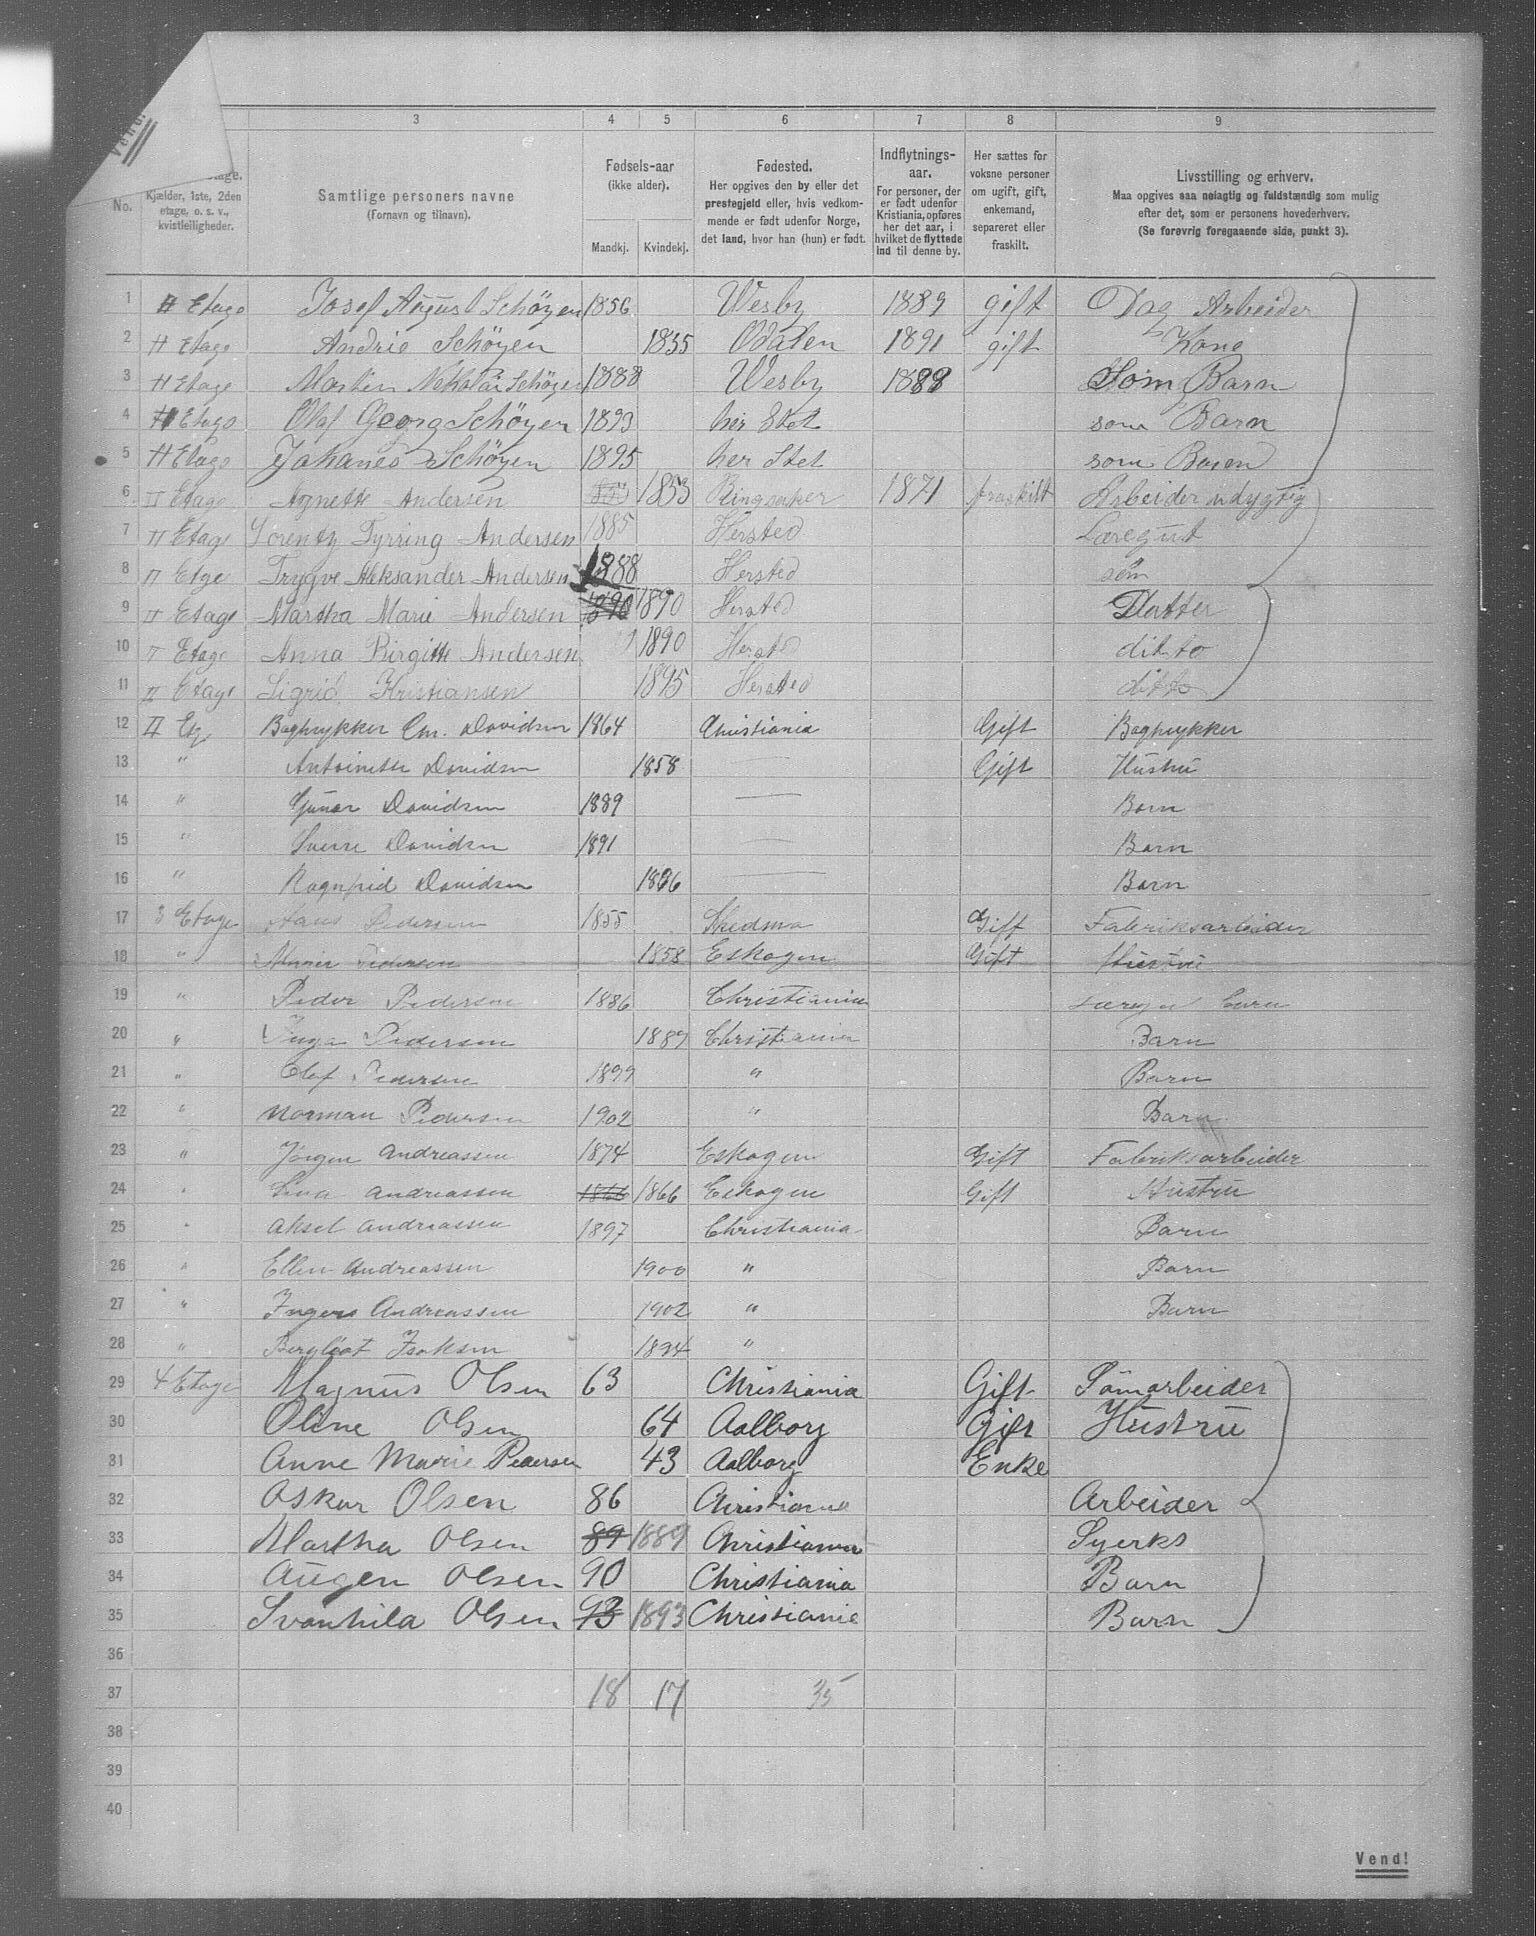 Vend!
3 4 5 6 7 8 9
No.
Kjælder, 1ste, 2den etage, o. s. v., kvistleiligheder.
Samtlige personers navne
(Fornavn og tilnavn).
Fødsels-aar
(ikke alder).
Mandkj. Kvindekj.
Fødested.
Her opgives den by eller det prestegjeld eller, hvis vedkommende er født udenfor Norge, det land, hvor han (hun) er født.
Indflytnings-aar.
For personer, der er født udenfor Kristiania, opføres her det aar, i hvilket de flyttede ind til denne by.
Her sættes for voksne personer om ugift, gift, enkemand, separeret eller fraskilt.
Livsstilling og erhverv.
Maa opgives saa nøiagtig og fuldstændig som mulig efter det, som er personens hovederhverv.
(Se forøvrig foregaaende side, punkt 3).
1 II Etage Josef August Schöyen 1856 Wesby 1889 gift Dag Arbeider
2 II Etage Andrie Schöyen 1835 Odalen 1891 gift Kone
3 II Etage Martin Nekolai Schöyen 1888 Wesby 1888 Som Barn
4 II Etage Olaf Georg Schöyen 1893 her Stet som Barn
5 II Etage Johanes Schöyen 1895 her Stet som Baren
6 II Etage Agnette Andersen 1853 Ringsaker 1871 fraskilt Arbeider udygtig
7 II Etage Lorentz Tyrring Andersen 1885 Hersted Læregut
8 II Etge Trygve Aleksander Andersen 1888 Hersted søn
9 II Etage Martha Marie Andersen 1890 1890 Hersted Datter
10 II Etage Anna Birgitte Andersen 1890 Hersted ditto
11 II Etage Sigrid Kristiansen 1895 Hersted ditto
12 II Etg Bogtrykker Chr. Davidsen 1864 Christiania Gift Bogtrykker
13 " Antoinette Davidsen 1858 — Gift Hustru
14 " Gunar Davidsen 1889 — Barn
15 " Sverre Davidsen 1891 — Barn
16 " Ragnfrid Davidsen 1896 — Barn
17 3 Etage Hans Pedersen 1855 Skedsmo Gift Fabriksarbeider
18 " Marie Pedersen 1858 Eskogen Gift Hustru
19 " Peder Pedersen 1886 Christiania
20 " Inga Pedersen 1889 Christiania Barn
21 " Olaf Pedersen 1899 " Barn
22 " Norman Pedersen 1902 " Barn
23 " Jørgen Andreassen 1874 Eskogen Gift Fabriksarbeider
24 " Lina Andreassen 1866 1866 Eskogen Gift Hustru
25 " Aksel Andreassen 1897 Christiania Barn
26 " Ellen Andreassen 1900 " Barn
27 " Inger Andreassen 1902 " Barn
28 " Bergliot Isaksen 1894 "
29 4 Etage Magnus Olsen 63 Christiania Gift Sömarbeider
30 Oline Olsen 64 Aalborg Gift Hustru
31 Anne Marie Pedersen 43 Aalborg Enke
32 Oskar Olsen 86 Christiania Arbeider
33 Martha Olsen 89 1889 Christiania Syerks
34 Augen Olsen 90 Christiania Barn
35 Svanhila Olsen 93 1893 Christiania Barn
36
37 18 17 35
38
39
40
Vend!